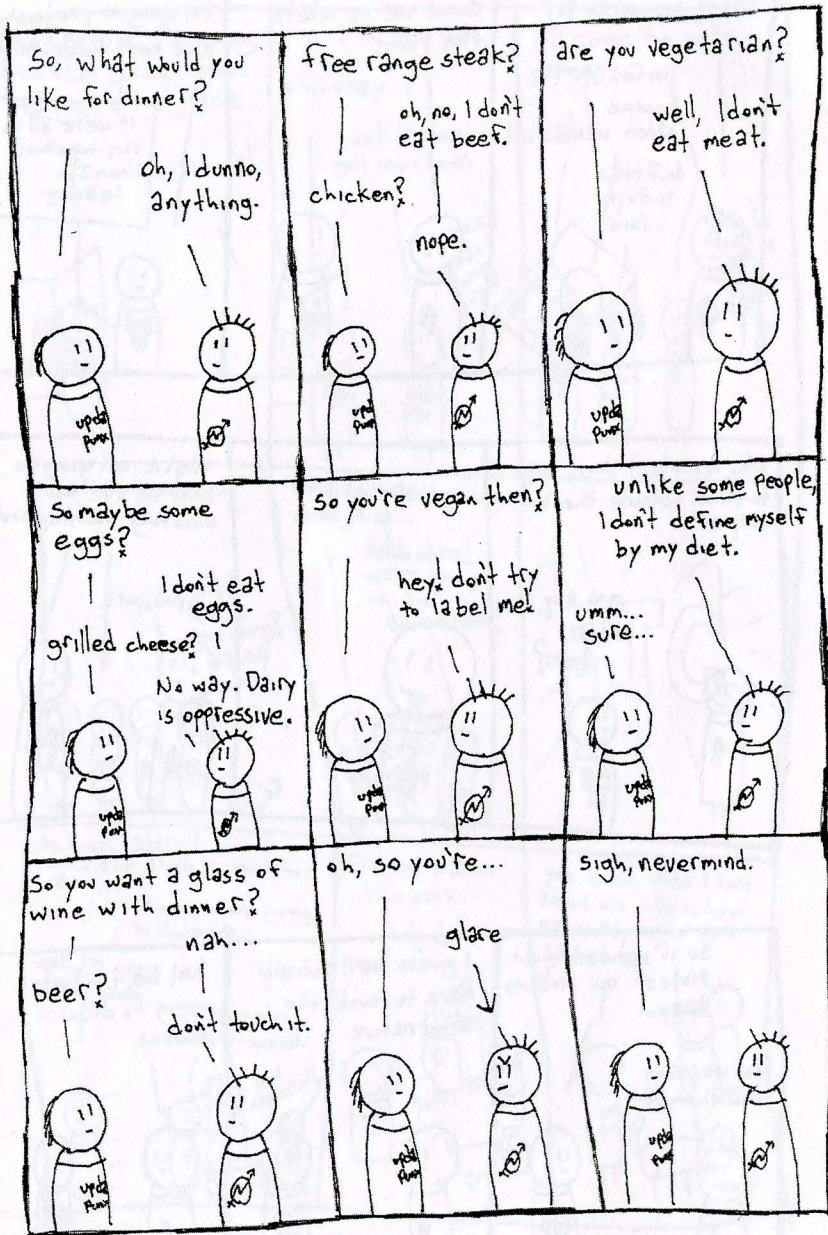 So, what would you
like for dinner?
oh, I dunno,
anything.
up da
punx
free range steak?
oh, no, I don't
eat beef.
chicken?
nope.
are you vegetarian?
well, I don't
eat meat.
up da
punx
So maybe some
eggs?
I don't eat
eggs.
grilled cheese?
No way. Dairy
is oppressive.
So you're vegan then?
hey. don't try
to label me!
unlike some people,
I don't define myself
by my diet.
umm...
sure...
So you want a glass of
wine with dinner?
nah...
beer?
don't touch it.
up da
punx
oh, so you're...
glare
up da
punx
sigh, nevermind.
up da
punx